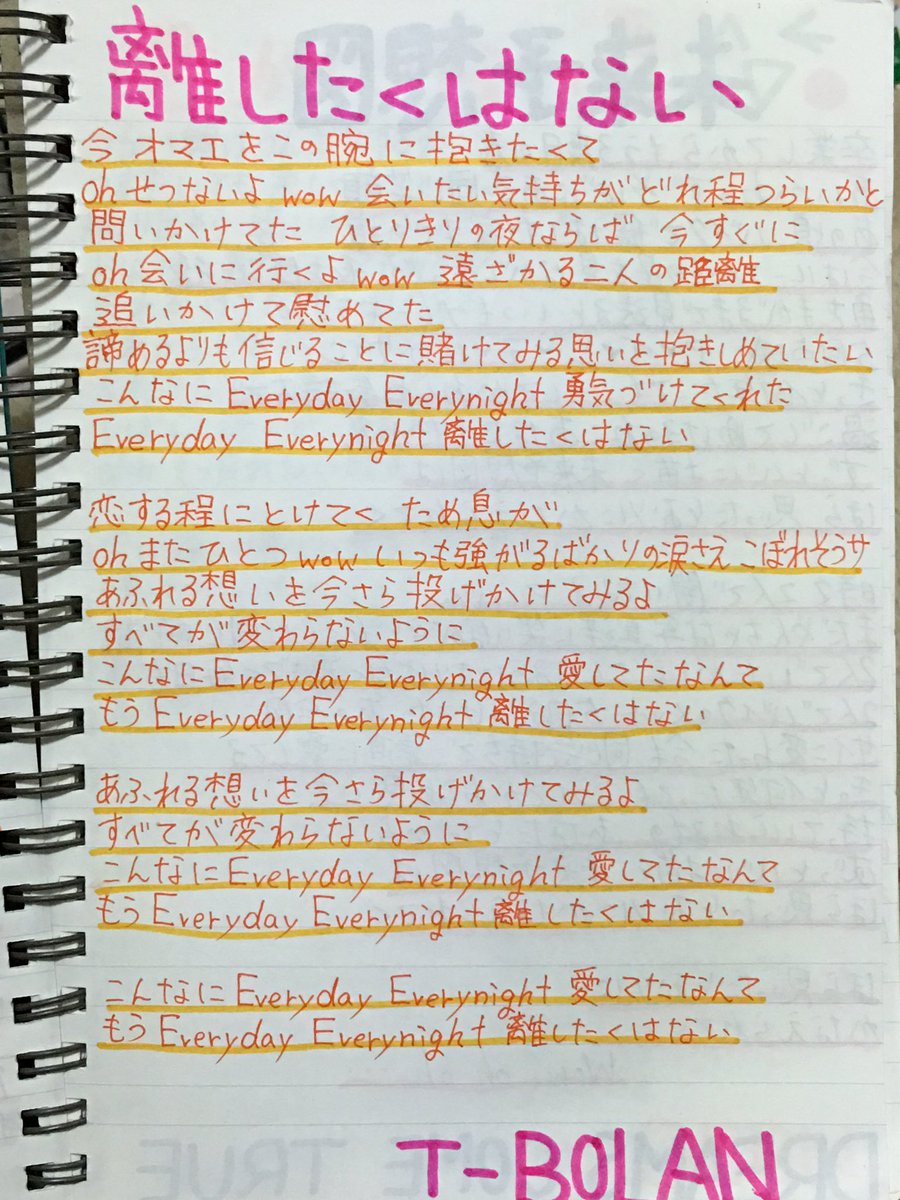 離したくはない
今 オマエをこの腕に抱きたくて
oh せつないよ wow 会いたい気持ちが どれ程つらいかと
問いかけてた ひとりきりの夜ならば 今すぐに
oh 会いに行くよ wow 遠ざかる二人の距離
追いかけて慰めてた
諦めるよりも信じることに賭けてみる思いを抱きしめていたい
こんなに Everyday Everynight 勇気づけてくれた
Everyday Everynight 離したくはない
恋する程にとけてく ため息が
oh またひとつ wow いつも強がるばかりの涙さえ こぼれそうサ
あふれる想いを今さら投げかけてみるよ
すべてが変わらないように
こんなに Everyday Everynight 愛してたなんて
もう Everyday Everynight 離したくはない
あふれる想いを今さら投げかけてみるよ
すべてが変わらないように
こんなに Everyday Everynight 愛してたなんて
もう Everyday Everynight 離したくはない
こんなに Everyday Everynight 愛してたなんて
もう Everyday Everynight 離したくはない
T-BOLAN